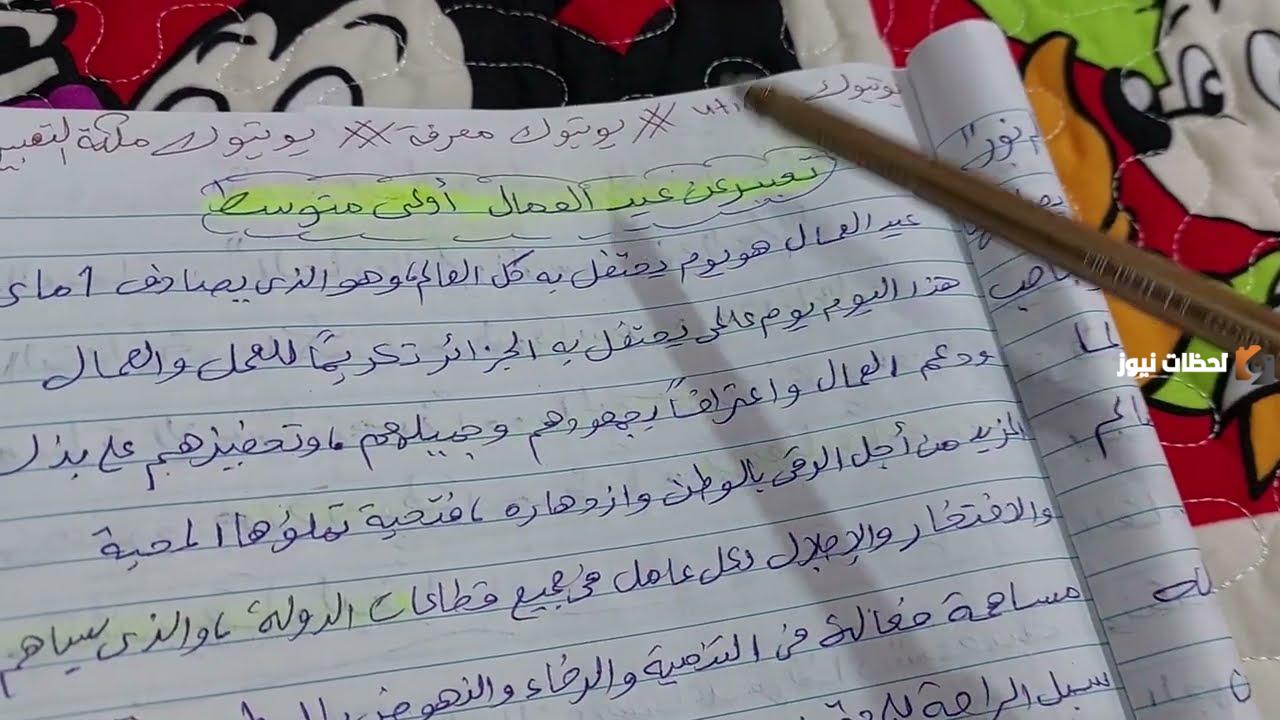 يوتيوك
* يوتيوك معرفة ** يوتيوك ملكة التعبير
تعبير عن عيد العمال أولى متوسط
عيد العمال هو يوم نحتفل به كل العالم، وهو الذي يصادف 1 ماي
هذا اليوم يوم عالمي تحتفل به الجزائر تكريمًا للعمل والعمال
ودعم العمال واعترافًا بجهودهم وجميلهم، وتحفيزهم على بذل
المزيد من أجل الرقي بالوطن وازدهاره، فتحية تملؤها المحبة
والافتخار والإجلال لكل عامل في جميع قطاعات الدولة، والذي يساهم
مساهمة فعالة في التنمية والرخاء والنهوض
سبل الراحة
نور"
لحظات نيوز